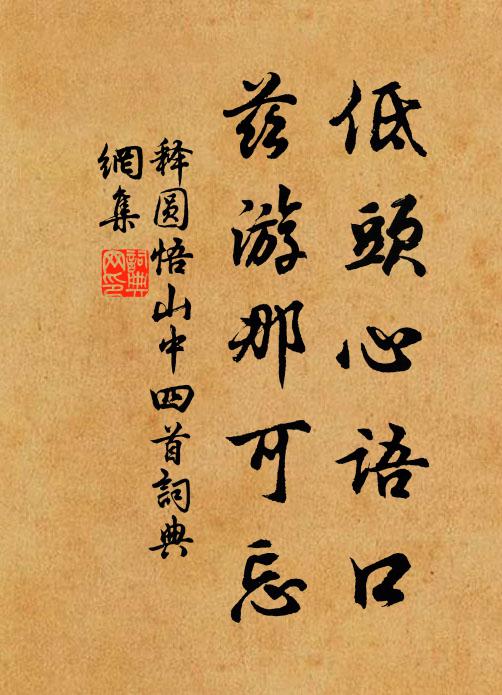 低頭心語口
茲游那可忘
释圆悟山中四首詞典
網集
詞典
网印